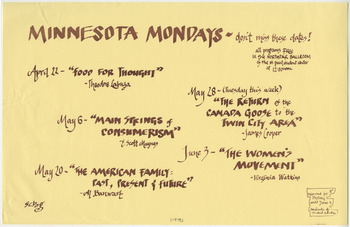 MINNESOTA MONDAYS - don't miss these dates!
all programs FREE
in the NORTHSTAR BALLROOM
of the st. paul student center
at 12:00 noon
April 22 - "FOOD FOR THOUGHT"
- Theodore Labuza
May 6 - "MAIN SPRINGS of
CONSUMERISM"
- Scott Magnus
May 20 - "THE AMERICAN FAMILY:
PAST, PRESENT & FUTURE"
May 28 - (Tuesday this week)
"THE RETURN of the
CANADA GOOSE to the
TWIN CITY AREA"
- James Cooper
June 3 - "THE WOMEN'S
MOVEMENT"
- Virginia Watkins